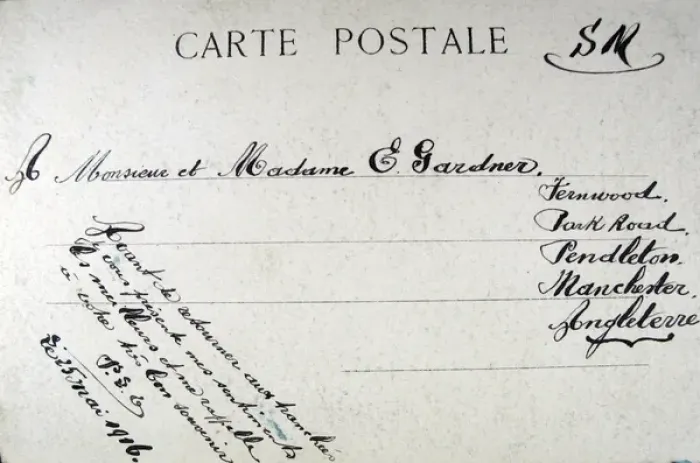 CARTE POSTALE
SM
A Monsieur et Madame E. Gardner.
Fernwood.
Park Road.
Pendleton.
Manchester.
Angleterre
Avant de retourner aux tranchées
je vous présente mes sentiments
les meilleurs et me rappelle
à votre très bon souvenir
Le 25 Mai 1916.